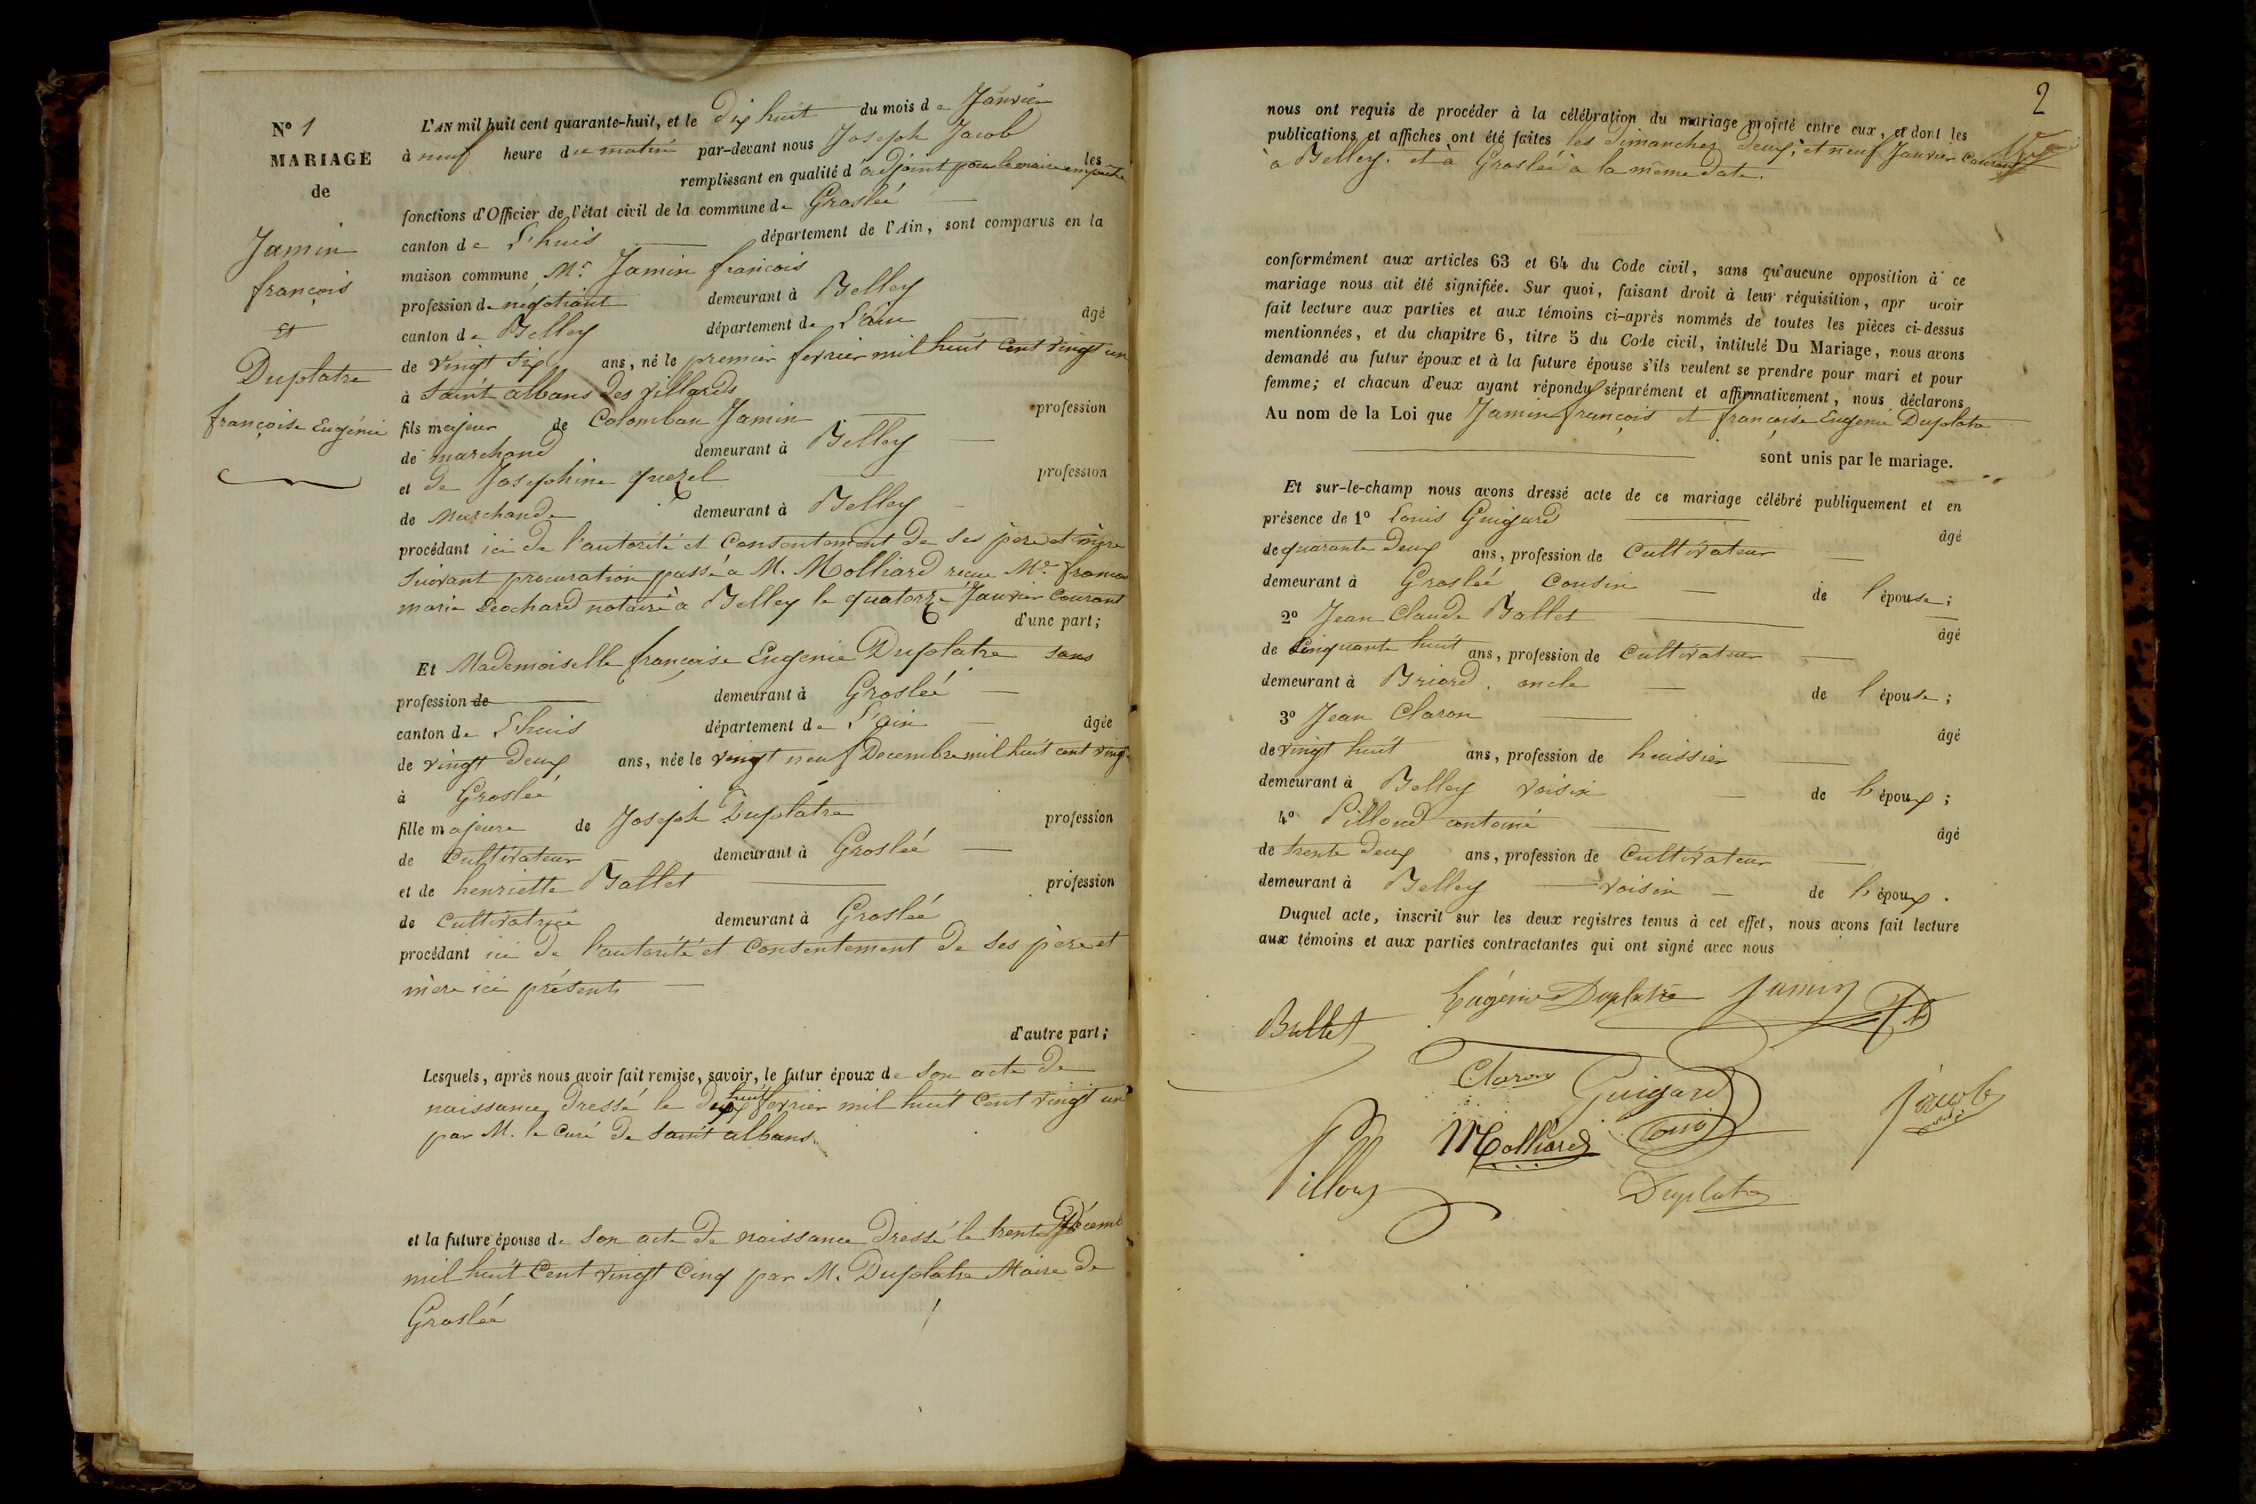 N° 1
MARIAGE
de
Jamin
françois
et
Duplatre
françoise Eugénie
L'AN mil huit cent quarante-huit, et le dix huit du mois de Janvier
à neuf heure du matin par-devant nous Joseph Jacob
remplissant en qualité d'adjoint pour le maire empêché les
fonctions d'Officier de l'état civil de la commune de Groslée
canton de L'huis département de l'Ain, sont comparus en la
maison commune Mr Jamin françois
profession de négotiant demeurant à Belley
canton de Belley département de L'ain âgé
de vingt six ans, né le premier fevrier mil huit cent vingt un
à Saint albans des villards
fils majeur de Colomban Jamin profession
de marchand demeurant à Belley
et de Josephine quezel profession
de Marchande demeurant à Belley
procédant ici de l'autorité et Consentement de ses père et mère
suivant procuration passé a M. Molliard recue Me françois
marie Deochard notaire à Belley le quatorze Janvier Courant
d'une part;
Et Mademoiselle françoise Eugenie Duplatre sans
profession de demeurant à Groslée
canton de L'huis département de L'ain âgée
de vingt deux ans, née le vingt neuf Decembre mil huit cent vingt
à Groslée
fille majeure de Joseph Duplatre profession
de Cultivateur demeurant à Groslée
et de henriette Ballet profession
de Cultivatrice demeurant à Groslée
procédant ici de l'autorité et Consentement de ses père et
mère ici présents
d'autre part;
Lesquels, après nous avoir fait remise, savoir, le futur époux de son acte de
naissance dressé le huit fevrier mil huit Cent vingt un
par M. le Curé de Saint albans
et la future épouse de son acte de naissance dressé le trente Décemb
mil huit Cent vingt Cinq par M. Duplatre Maire de
Groslée
2
nous ont requis de procéder à la célébration du mariage projeté entre eux, et dont les
publications et affiches ont été faites les Dimanches deux, et neuf Janvier Courant
à Belley. et à Groslée à la même date.
conformément aux articles 63 et 64 du Code civil, sans qu'aucune opposition à ce
mariage nous ait été signifiée. Sur quoi, faisant droit à leur réquisition, apr avoir
fait lecture aux parties et aux témoins ci-après nommés de toutes les pièces ci-dessus
mentionnées, et du chapitre 6, titre 5 du Code civil, intitulé Du Mariage, nous avons
demandé au futur époux et à la future épouse s'ils veulent se prendre pour mari et pour
femme; et chacun d'eux ayant répondu séparément et affirmativement, nous déclarons
Au nom de la Loi que Jamin françois et françoise Eugenie Duplatre
sont unis par le mariage.
Et sur-le-champ nous avons dressé acte de ce mariage célébré publiquement et en
présence de 1° Louis Guigard âgé
de quarante deux ans, profession de Cultivateur
demeurant à Groslée Cousin de l'épouse;
2° Jean Claude Ballet âgé
de Cinquante huit ans, profession de Cultivateur
demeurant à Briord. oncle de l'épouse;
3° Jean Claron âgé
de vingt huit ans, profession de huissier
demeurant à Belley voisin de l'époux;
4° Pilloud antoine âgé
de trente deux ans, profession de Cultivateur
demeurant à Belley voisin de l'époux.
Duquel acte, inscrit sur les deux registres tenus à cet effet, nous avons fait lecture
aux témoins et aux parties contractantes qui ont signé avec nous
Eugénie Duplatre Jamin
Ballet
Claron Guigard
Louis
Jacob
Molliard
Pilloud
Duplatre